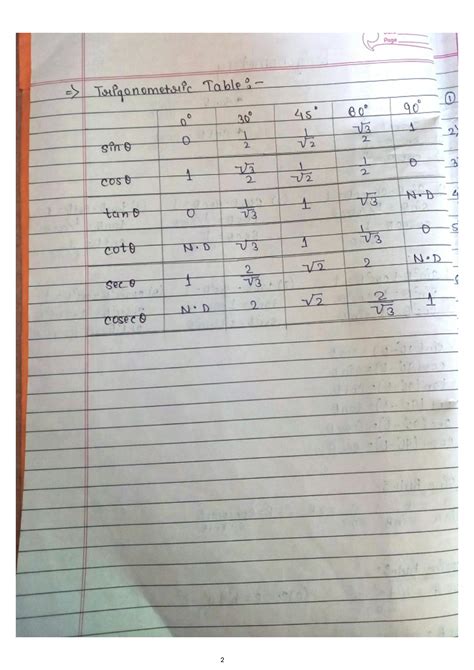 Page
⇒ Trigonometric Table:-
0° 30° 45° 60° 90°
sinθ 0 1/2 1/√2 √3/2 1
cosθ 1 √3/2 1/√2 1/2 0
tanθ 0 1/√3 1 √3 N.D
cotθ N.D √3 1 1/√3 0
secθ 1 2/√3 √2 2 N.D
cosecθ N.D 2 √2 2/√3 1
2